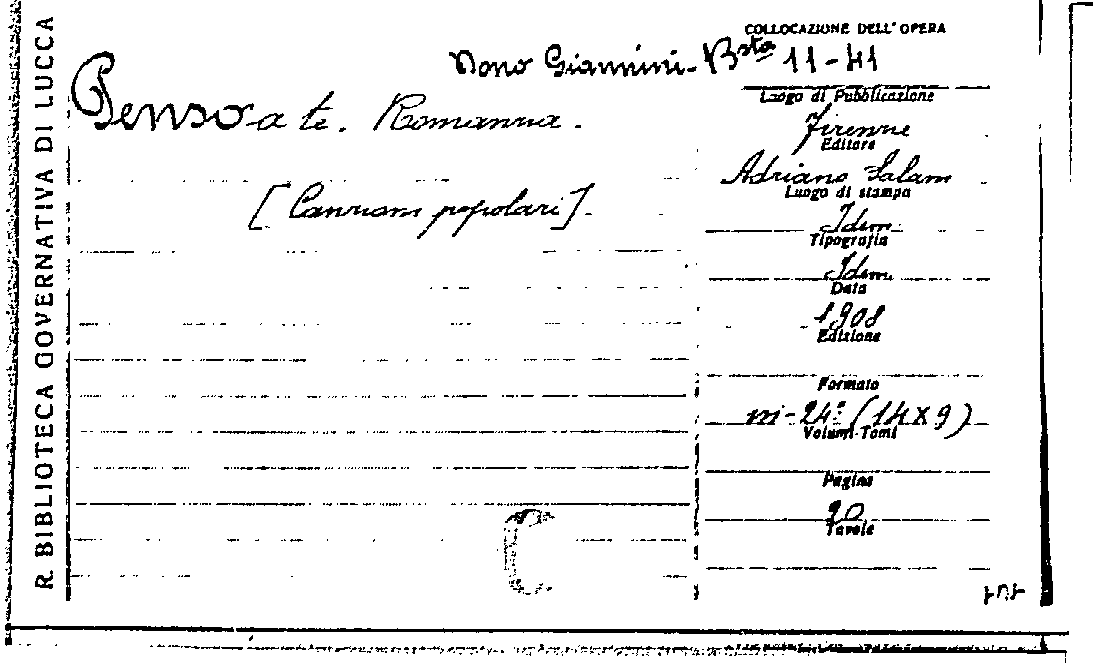 R. BIBLIOTECA GOVERNATIVA DI LUCCA
COLLOCAZIONE DELL'OPERA
Dono Giannini - Bsta 11-41
Penso a te. Romanza.
[Canzoni popolari].
Luogo di Pubblicazione
Firenze
Editore
Adriano Salani
Luogo di stampa
Idem
Tipografia
Idem
Data
1908
Edizione
Formato
in-24º (14 X 9)
Volumi-Tomi
Pagine
20
Tavole
C